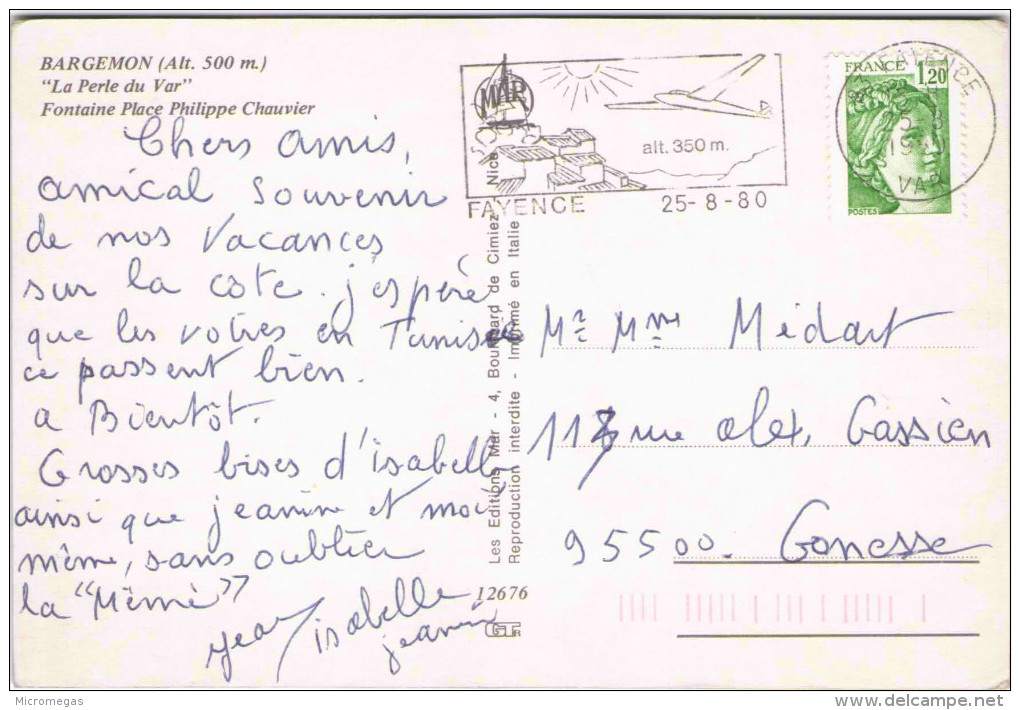 BARGEMON (Alt. 500 m.)
"La Perle du Var"
Fontaine Place Philippe Chauvier
Chers amis,
amical souvenir
de nos vacances
sur la côte. j'espère
que les votres en Tunisie
ce passent bien.
a Bientôt.
Grosses bises d'isabelle
ainsi que jeanine et moi
même, sans oublier
la "Mémé"
jean isabelle
jeanine
MAR
alt. 350 m.
FAYENCE 25-8-80
FRANCE 1,20
POSTES
25-8
1980
VAR
Les Editions Mar - 4, Boulevard de Cimiez - Nice
Reproduction interdite - Imprimé en Italie
Mr Mme Médart
rue alex, Gassien
95500. Gonesse
12676
Micromegas
delcampe.net